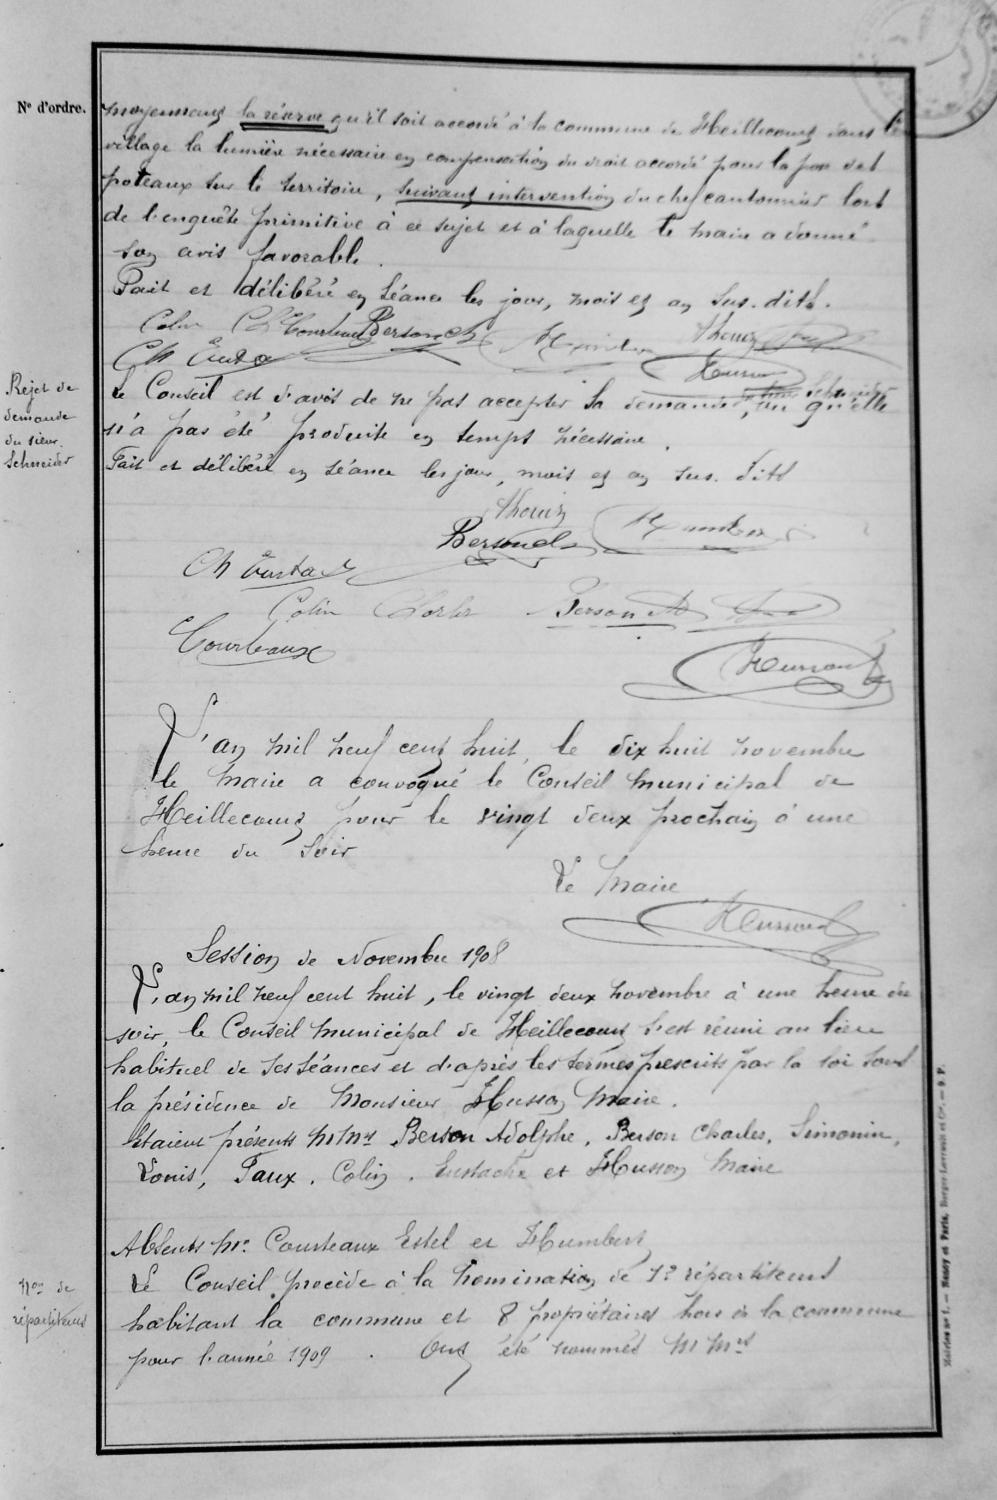 N° d'ordre.
moyennant la réserve qu'il soit accordé à la commune de Heillecourt dans le
village la lumière nécessaire en compensation du droit accordé pour la pose des
poteaux sur le territoire, suivant intervention du chef cantonnier lors
de l'enquête primitive à ce sujet et à laquelle le maire a donné
son avis favorable.
Fait et délibéré en séance les jour, mois et an sus-dits.
Colin Courteaux Berson Ch
Thouin
Ch Eustache
Husson
Rejet de
demande
du sieur
Schneider
Le Conseil est d'avis de ne pas accepter la demande, vu qu'elle
n'a pas été produite en temps nécessaire.
Fait et délibéré en séance les jour, mois et an sus-dits
Thouin
Berson Ch
Humbert
Ch Eustache
Colin
Berson Ad
Courteaux
Husson
L'an mil neuf cent huit, le dix huit novembre
le Maire a convoqué le Conseil municipal de
Heillecourt pour le vingt deux prochain à une
heure du soir
Le Maire
Husson
Session de Novembre 1908
L'an mil neuf cent huit, le vingt deux novembre à une heure du
soir, le Conseil municipal de Heillecourt s'est réuni au lieu
habituel de ses séances et d'après les termes prescrits par la loi sous
la présidence de Monsieur Husson Maire.
Etaient présents MMrs Berson Adolphe, Berson Charles, Simonin,
Louis, Faux, Colin, Eustache et Husson Maire
Absents Mr. Courteaux Estel et Humbert
Non de
répartiteurs
Le Conseil procède à la nomination de 12 répartiteurs
habitant la commune et 8 propriétaires hors de la commune
pour l'année 1909. Ont été nommés MMrs
Mairies n° 1. — Nancy et Paris, Berger-Levrault et Cie. — 9 P.